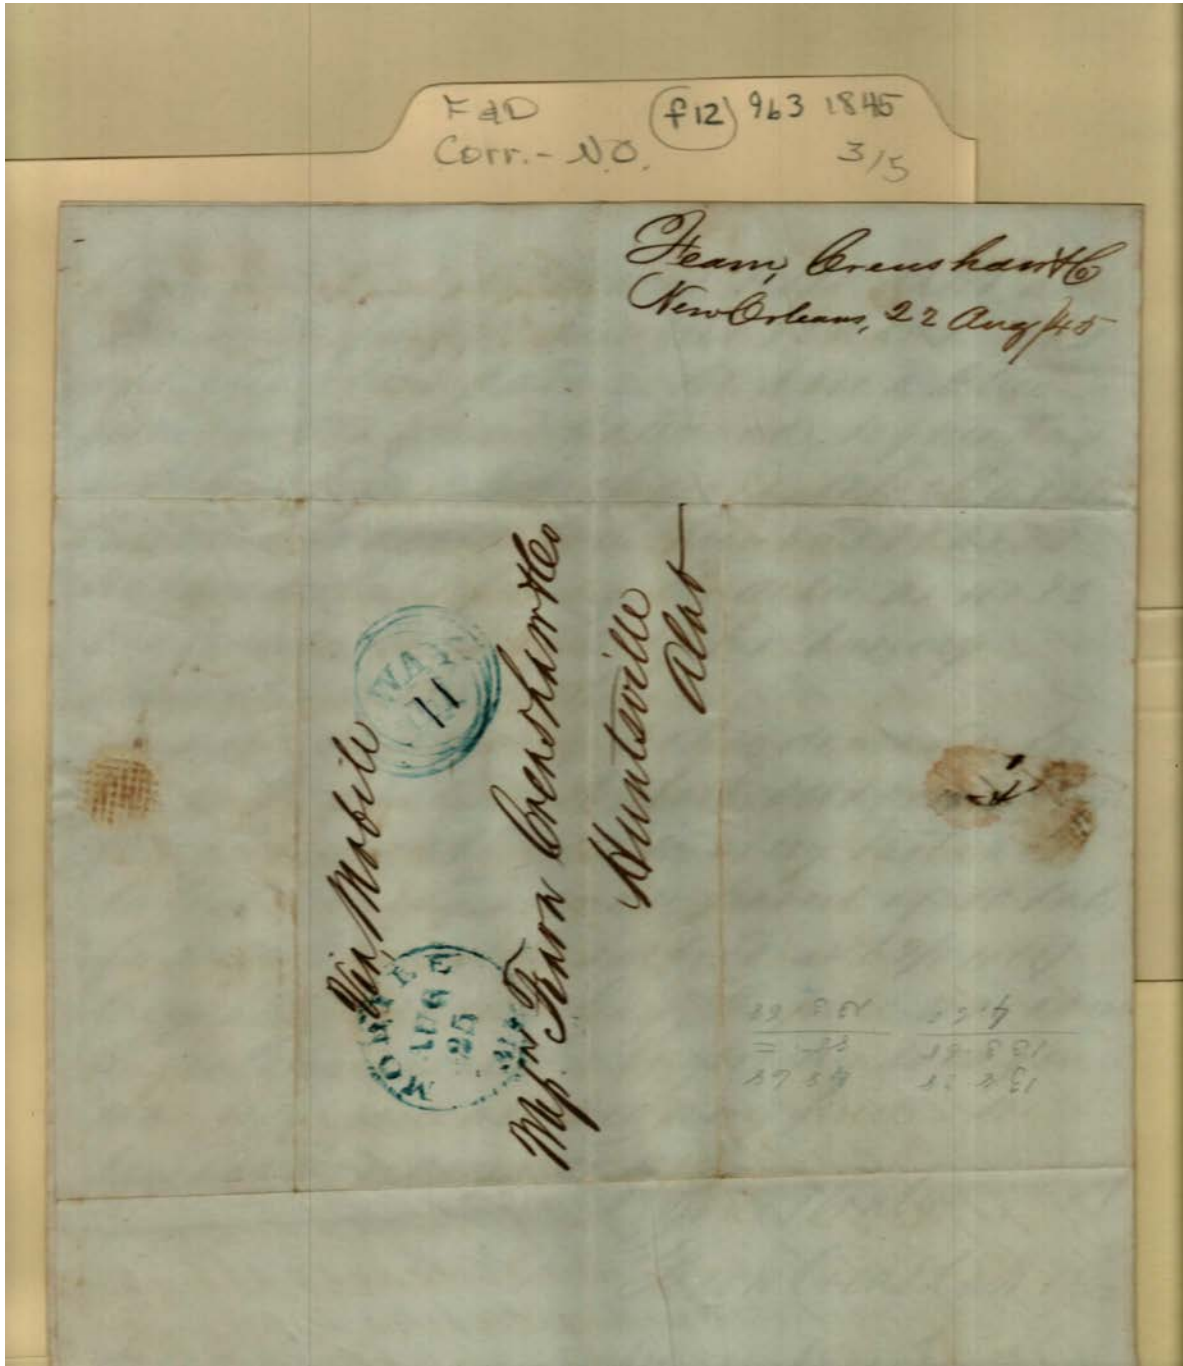 F&D (f12) 963 1845
Corr. - N.O. 3/5
Fearn, Crenshaw & Co
New Orleans, 22 Aug/45
Via Mobile
WAY
11
MOBILE
AUG
25
Messrs Fearn Crenshaw & Co
Huntsville
Alab